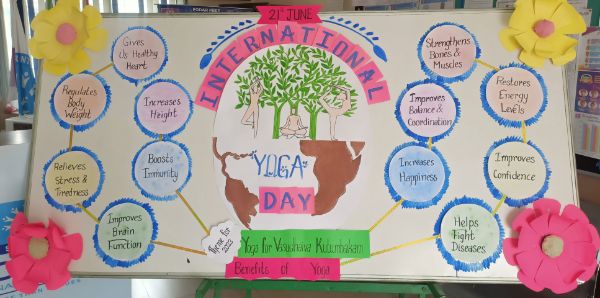 21st JUNE
INTERNATIONAL
"YOGA"
DAY
Gives
Us Healthy
Heart
Regulates
Body
Weight
Increases
Height
Relieves
Stress &
Tiredness
Boosts
Immunity
Improves
Brain
Function
Strengthens
Bones &
Muscles
Restores
Energy
Levels
Improves
Balance &
Coordination
Improves
Confidence
Increases
Happiness
Helps
Fight
Diseases
Theme for
2023
Yoga for Vasudhaiva Kutumbakam
Benefits of Yoga